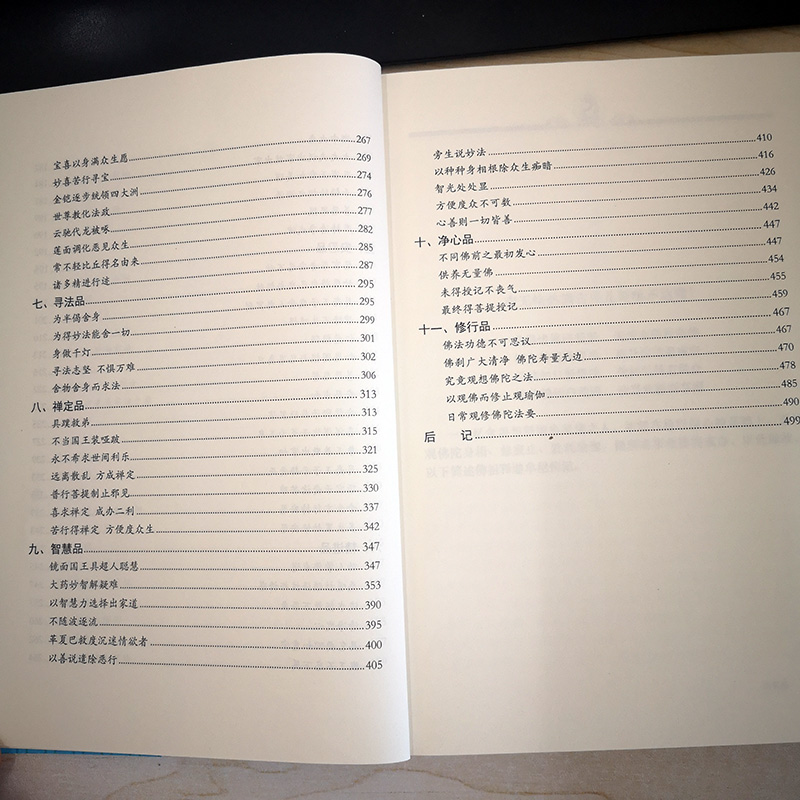 宝喜以身满众生愿 267
妙喜苦行寻宝 269
金铠逐步统领四大洲 274
世尊教化法政 276
云驰代龙被啄 277
莲面调化恶见众生 282
常不轻比丘得名由来 285
诸多精进行迹 287
七、寻法品 295
为半偈舍身 295
为得妙法能舍一切 299
身做千灯 301
寻法志坚 不惧万难 302
舍物舍身而求法 306
八、禅定品 313
具蹼救弟 313
不当国王装哑跛 315
永不希求世间利乐 321
远离散乱 方成禅定 325
普行菩提制止邪见 330
喜求禅定 成办二利 337
苦行得禅定 方便度众生 342
九、智慧品 347
镜面国王具超人聪慧 347
大药妙智解疑难 353
以智慧力选择出家道 390
不随波逐流 395
革夏巴救度沉迷情欲者 400
以善说遣除恶行 405
旁生说妙法 410
以种种身相根除众生痴暗 416
智光处处显 426
方便度众不可数 434
心善则一切皆善 442
十、净心品 447
不同佛前之最初发心 447
供养无量佛 454
未得授记不丧气 455
最终得菩提授记 459
十一、修行品 467
佛法功德不可思议 467
佛刹广大清净 佛陀寿量无边 470
究竟观想佛陀之法 478
以观佛而修止观瑜伽 485
日常观修佛陀法要 490
后 记 499